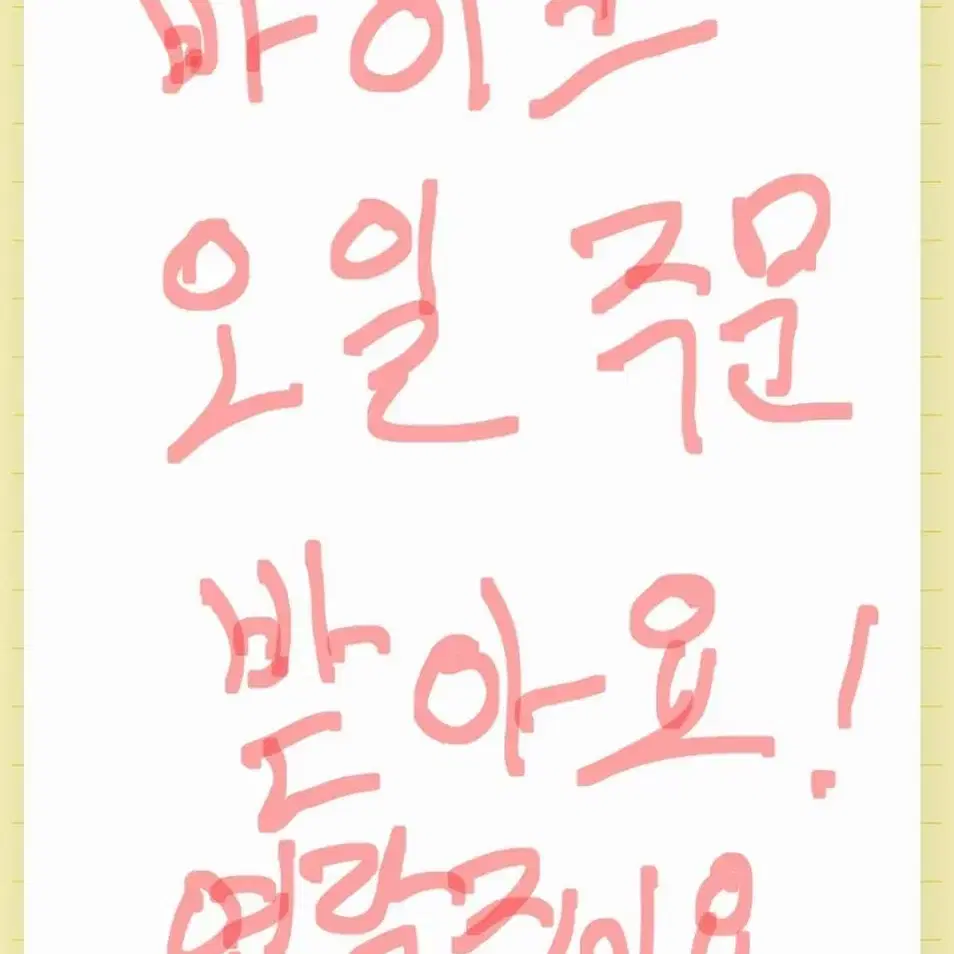 바이크
오일 주문
받아요!
연락주세요